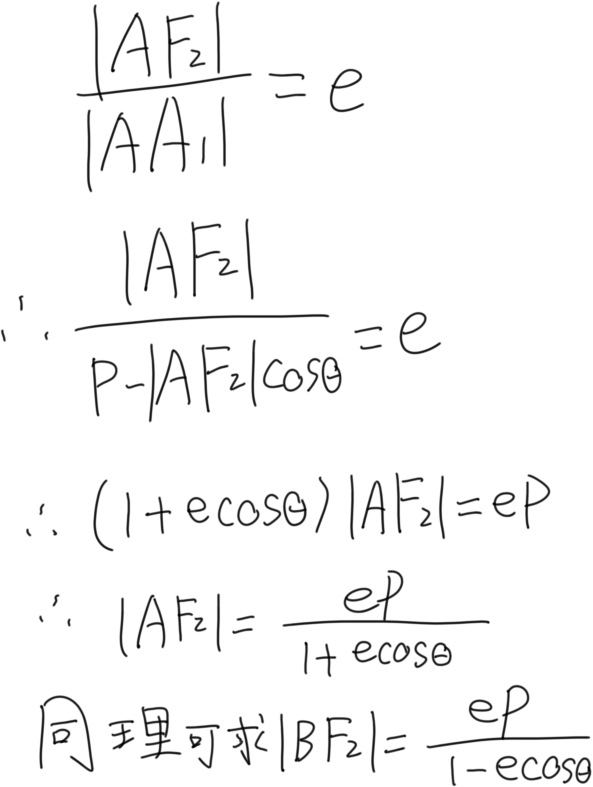 |AF₂| / |AA₁| = e
∴ |AF₂| / (P-|AF₂|cosθ) = e
∴ (1+ecosθ)|AF₂|=eP
∴ |AF₂|= eP / (1+ecosθ)
同理可求|BF₂|= eP / (1-ecosθ)